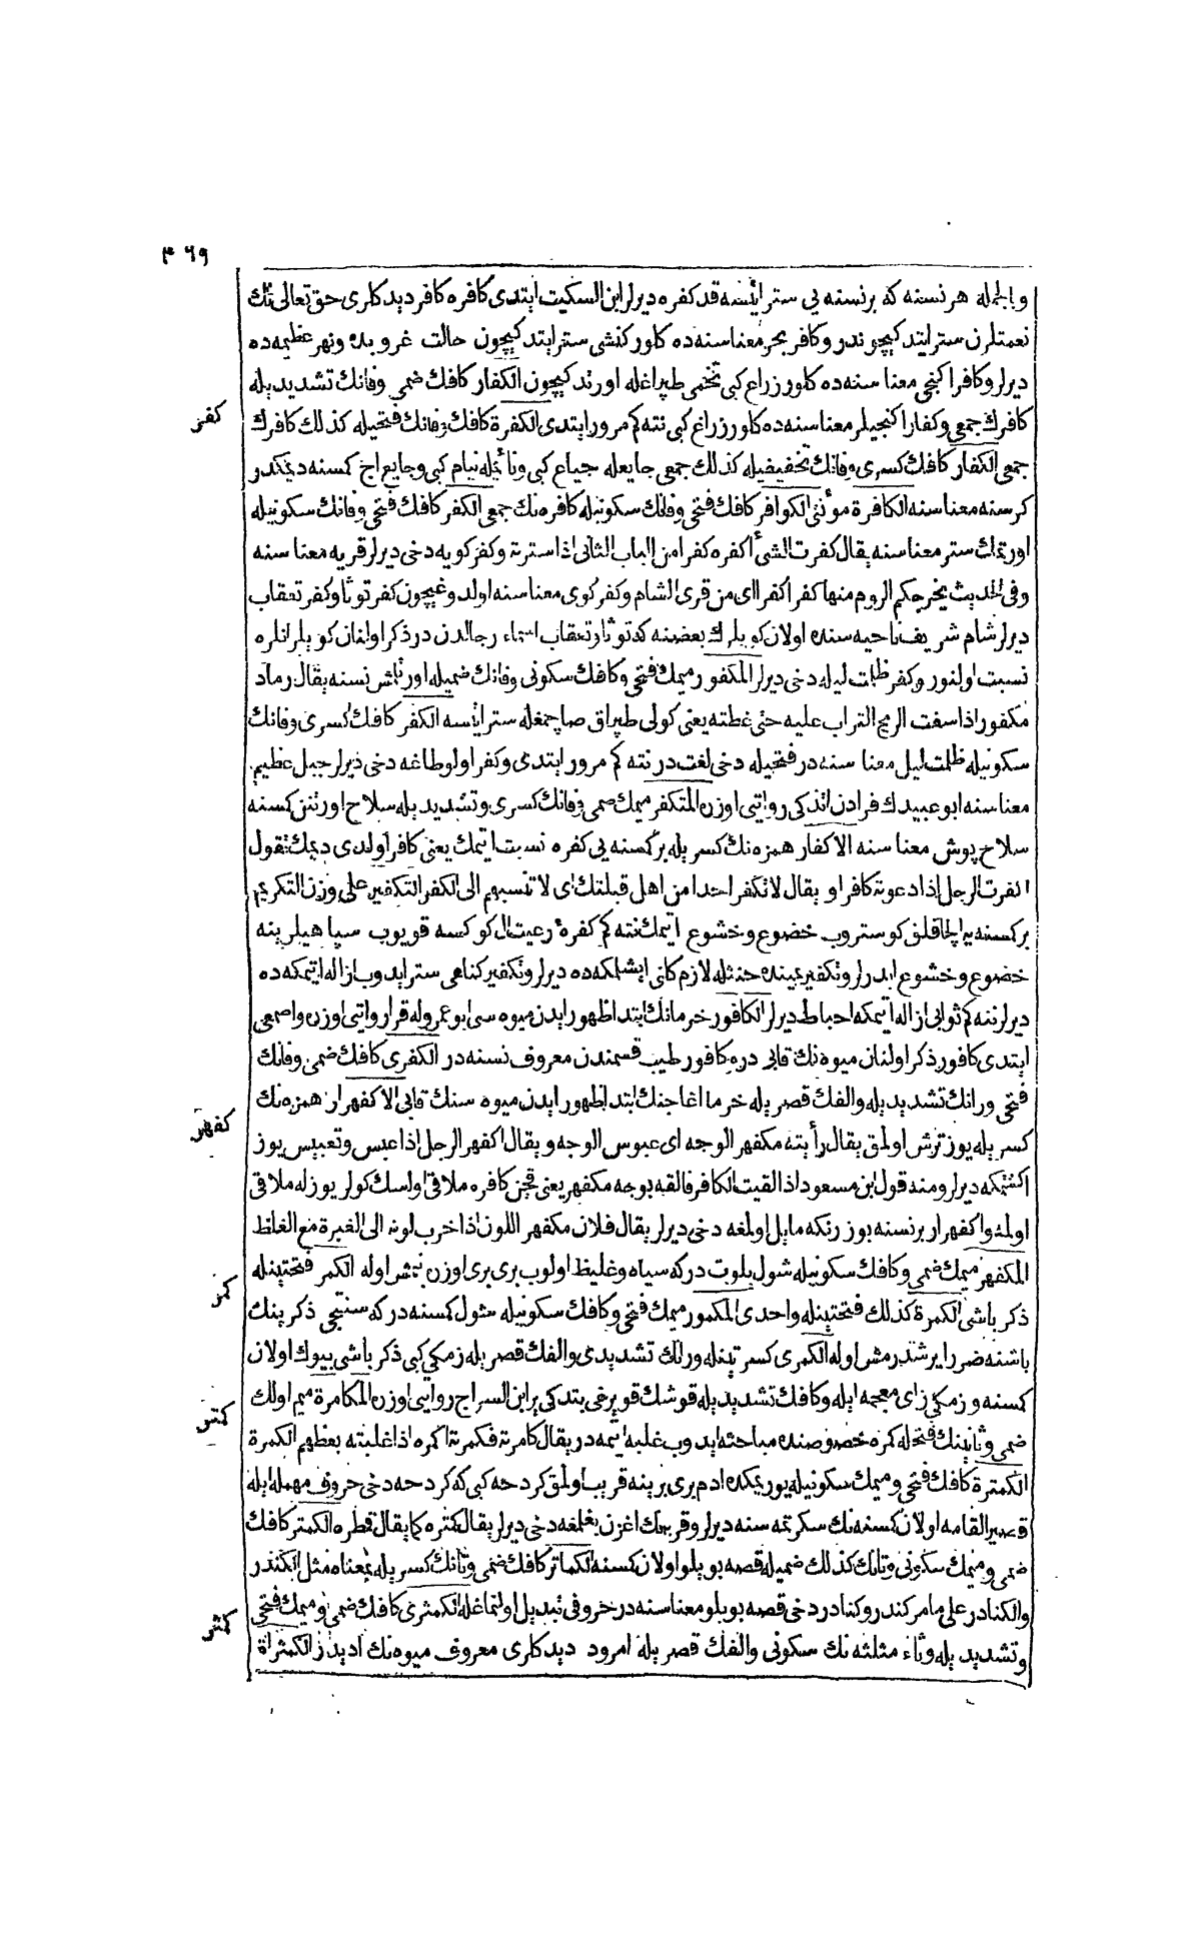 ٣٦٩
وبالجمله هر نسنه كه بر نسنه يى ستر ايلسه قد كفره ديرلر ابن السكيت ايتدى كافره كافر ديدكلرى حق تعالى نك
نعمتلرن ستر ايتدكيچوندر و كافر بحر معناسنه ده كلور كنشى ستر ايتدكيچون حالت غروبده و نهر عظيمه ده
ديرلر و كافر اكنجى معناسنه ده كلور زراع كبى تخمى طپراغله اورتدكيچون الكفار كافك ضمى و فانك تشديديله
كفر
كافرك جمعى و كفار اكنجيلر معناسنه ده كلور زراع كبى نته كم مرور ايتدى الكفرة كافك و فانك فتحيله كذلك كافرك
جمعى الكفار كافك كسرى و فانك تخفيفيله كذلك جمعى جايعله جياع كبى و نائمله نيام كبى و جايع اج كسنه ديمكدر
كرسنه معناسنه الكافرة مؤنثى الكوافر كافك فتحى و فانك سكونيله كافره نك جمعى الكفر كافك فتحى و فانك سكونيله
اورتمك ستر معناسنه يقال كفرت الشئ اكفره كفرا من الباب الثانى اذا سترته و كفر كويه دخى ديرلر قريه معناسنه
وفى الحديث يخرجكم الروم منها كفرا كفرا اى من قرى الشام و كفر كوى معناسنه اولدوغيچون كفر توثا و كفر تعقاب
ديرلر شام شريف ناحيه سنده اولان كويلرك بعضنه كه توثا و تعقاب اسماء رجالدن در ذكر اولنان كويلر انلره
نسبت اولنور و كفر ظلمت ليله دخى ديرلر المكفور ميمك فتحى و كافك سكونى و فانك ضميله اورتلمش نسنه يقال رماد
مكفور اذا سفت الريح التراب عليه حتى غطته يعنى كولى طپراق صاچمغله ستر ايلسه الكفر كافك كسرى و فانك
سكونيله ظلمت ليل معناسنه در فتحيله دخى لغت در نته كم مرور ايتدى و كفر اولو طاغه دخى ديرلر جبل عظيم
معناسنه ابو عبيدك فرادن اتدكى روايتى اوزره المتكفر ميمك ضمى و فانك كسرى و تشديديله سلاح اورتنن كسنه
سلاح پوش معناسنه الاكفار همزه نك كسريله بر كسنه يى كفره نسبت ايتمك يعنى كافر اولدى ديمك تقول
اكفرت الرجل اذا دعوته كافرا و يقال لا تكفر احدا من اهل قبلتك اى لا تنسبهم الى الكفر التكفير على وزن التكريم
بر كسنه يه الچاقلق كوستروب خضوع و خشوع ايتمك نته كم كفره رعيت ال كوكسه قويوب سپاهيلرينه
خضوع و خشوع ايدرلر و تكفير يمينده حنثله لازم كلنى ايشلمكده ديرلر و تكفير كناهى ستر ايدوب ازاله ايتمكه ده
ديرلر نته كم ثوابى ازاله ايتمكه احباط ديرلر الكافور خرمانك ابتدا ظهور ايدن ميوه سى ابو عمرو له قرا روايتى اوزره و اصمعى
ايتدى كافور ذكر اولنان ميوه نك قابى در و كافور طيب قسمندن معروف نسنه در الكفرى كافك ضمى و فانك
فتحى و رانك تشديديله و الفك قصريله خرما اغاجنك ابتدا ظهور ايدن ميوه سنك قابى الاكفهرار همزه نك
كفهر
كسريله يوز ترش اولمق يقال رأيته مكفهر الوجه اى عبوس الوجه و يقال اكفهر الرجل اذا عبس و تعبيس يوز
اكشتمكه ديرلر و منه قول ابن مسعود اذا لقيت الكافر فالقه بوجه مكفهر يعنى قچن كافره ملاقى اولسك كولر يوزله ملاقى
اولمه و اكفهرار بر نسنه بوز رنكه مايل اولمغه دخى ديرلر يقال فلان مكفهر اللون اذا ضرب لونه الى الغبرة مع الغلظ
المكفهر ميمك ضمى و كافك سكونيله شول بلوت در كه سياه و غليظ اولوب برى برى اوزره بنمش اوله الكمر فتحتينله
كمر
ذكر باشى الكمرة كذلك فتحتينله واحدى المكمور ميمك فتحى و كافك سكونيله شول كسنه در كه سنتجى ذكرينك
باشنه ضرر ايرشدرمش اوله الكمرى كسرتينله و رانك تشديدى و الفك قصريله زمكى كبى ذكر باشى بيوك اولان
كسنه و زمكى زاى معجمه ايله و كافك تشديديله قوشك قويرغى بتدكى ير ابن السراج روايتى اوزره المكامرة ميم اولك
ضمى و ثانينك فتحله كمره خصوصنده مباحثه ايدوب غلبه ايتمه در يقال كامرته فكمرته اكمره اذا غلبته بعظم الكمرة
كمتر
الكمترة كافك فتحى و ميمك سكونيله يوريمكده ادم برى برينه قريب اولمق كردحه كبى كه كردحه دخى حروف مهمله ايله
قصير القامه اولان كسنه نك سكرتمه سنه ديرلر و قربه نك اغزن بغلمغه دخى ديرلر يقال كمتره كما يقال قطره الكمتر كافك
ضمى و ميمك سكونى و تانك كذلك ضميله قصه بويلو اولان كسنه الكماتر كافك ضمى و تانك كسريله بمعناه مثل الكندر
والكنادر على ما مر كندر و كنادر دخى قصه بويلو معناسنه در حروفى تبديل اولنماغله الكمثرى كافك ضمى و ميمك فتحى
كمثر
و تشديديله و ثاء مثلثه نك سكونى و الفك قصريله امرود ديدكلرى معروف ميوه نك اديدر الكمثراة